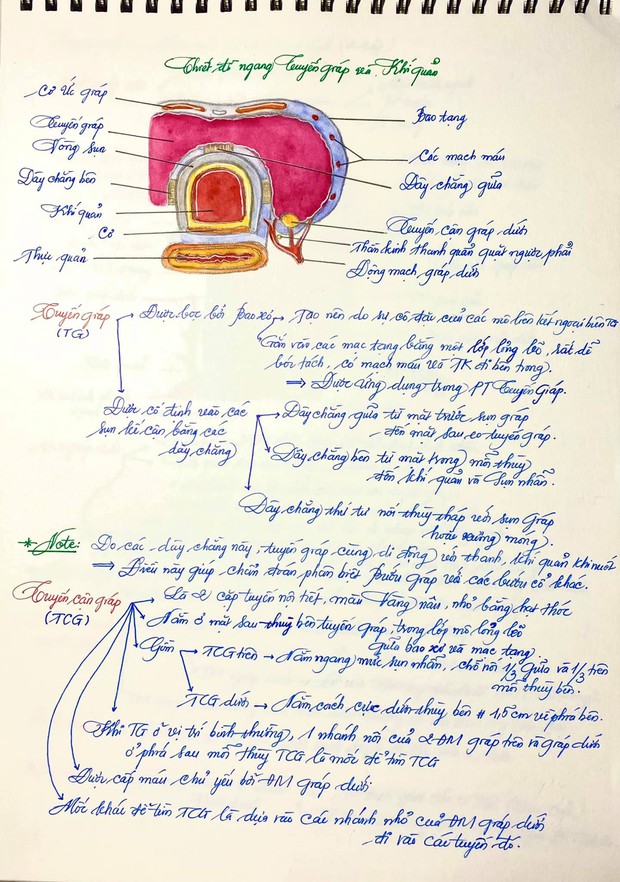 Thiết đồ ngang Tuyến giáp và Khí quản
Cơ ức giáp
Tuyến giáp
Vòng sụn
Dây chằng bên
Khí quản
Cơ
Thực quản
Bao tạng
Các mạch máu
Dây chằng giữa
Tuyến cận giáp dưới
Thần kinh thanh quản quặt ngược phải
Động mạch giáp dưới
Tuyến giáp
(TG)
Được bọc bởi Bao xơ
Tạo nên do sự cô đặc của các mô liên kết ngoại biên TG
Gắn vào các mạc tạng bằng một lớp lỏng lẻo, rất dễ
bóc tách, có mạch máu và TK đi bên trong.
⇒ Được ứng dụng trong PT Tuyến Giáp.
Được cố định vào các
sụn kế cận bằng các
dây chằng
Dây chằng giữa từ mặt trước sụn giáp
đến mặt sau eo tuyến giáp.
Dây chằng bên từ mặt trong mỗi thùy
đến khí quản và sụn nhẫn.
Dây chằng thứ tư nối thùy tháp với sụn Giáp
hoặc xương móng.
* Note: Do các dây chằng này, tuyến giáp cùng di động với thanh, khí quản khi nuốt
⇒ Điều này giúp chẩn đoán phân biệt Bướu giáp và các bướu cổ khác.
Tuyến cận giáp
(TCG)
Là 2 cặp tuyến nội tiết, màu Vàng nâu, nhỏ bằng hạt thóc
Nằm ở mặt sau thùy bên tuyến giáp, trong lớp mô lỏng lẻo
giữa bao xơ và mạc tạng.
Gồm
TCG trên → Nằm ngang mức sụn nhẫn, chỗ nối 1/3 giữa và 1/3 trên
mỗi thùy bên.
TCG dưới → Nằm cách cực dưới thùy bên # 1,5cm về phía bên.
Khi TG ở vị trí bình thường, 1 nhánh nối của 2 ĐM giáp trên và giáp dưới
ở phía sau mỗi thùy TCG là mốc để tìm TCG
Được cấp máu chủ yếu bởi ĐM giáp dưới
Mốc khác để tìm TCG là dựa vào các nhánh nhỏ của ĐM giáp dưới
đi vào các tuyến đó.